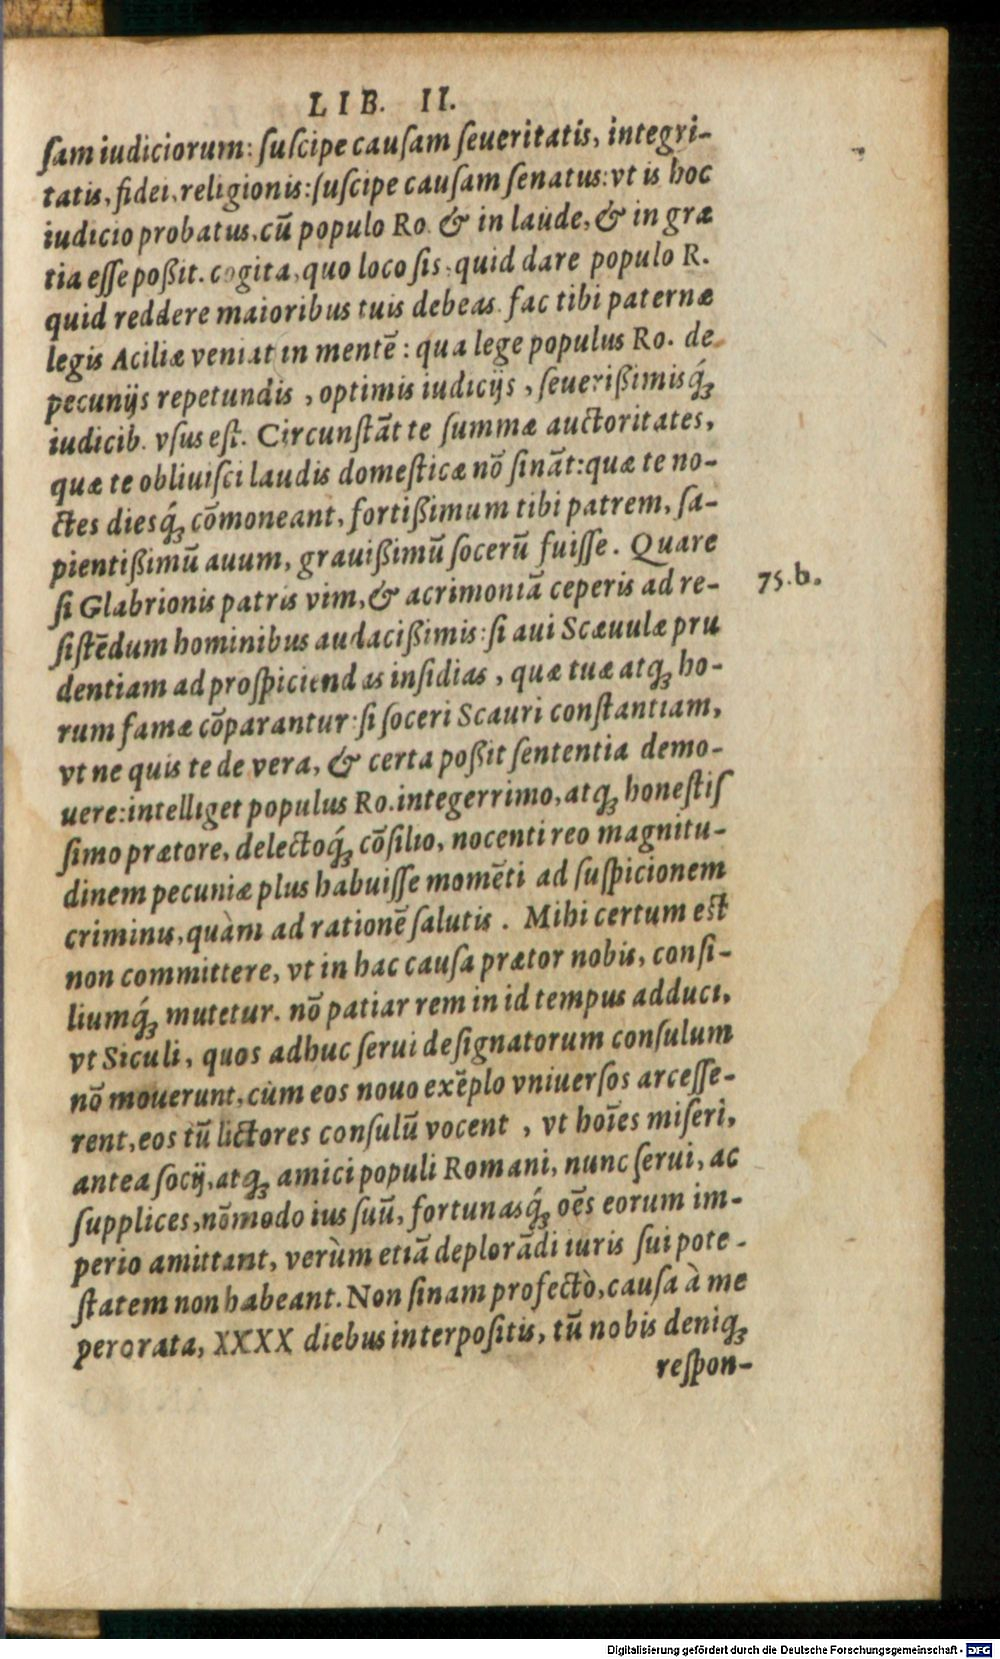 LIB. II.
ſam iudiciorum: ſuſcipe cauſam ſeueritatis, integri-
tatis, fidei, religionis: ſuſcipe cauſam ſenatus: vt is hoc
iudicio probatus, cū populo Ro. & in laude, & in græ
tia eſſe poßit. cogita, quo loco ſis, quid dare populo R.
quid reddere maioribus tuis debeas. fac tibi paternæ
legis Aciliæ veniat in mentē: qua lege populus Ro. de
pecunijs repetundis, optimis iudicijs, ſeuerißimisq́;
iudicib. vſus eſt. Circunſtāt te ſummæ auctoritates,
quæ te obliuiſci laudis domeſticæ nō ſināt: quæ te no-
ctes diesq́; cōmoneant, fortißimum tibi patrem, ſa-
pientißimū auum, grauißimū ſocerū fuiſſe. Quare
ſi Glabrionis patris vim, & acrimoniā ceperis ad re-
75.b.
ſiſtēdum hominibus audacißimis: ſi aui Scæuulæ pru
dentiam ad proſpiciendas inſidias, quæ tuæ atq; ho-
rum famæ cōparantur: ſi ſoceri Scauri conſtantiam,
vt ne quis te de vera, & certa poßit ſententia demo-
uere: intelliget populus Ro. integerrimo, atq; honeſtiſ
ſimo prætore, delectoq́; cōſilio, nocenti reo magnitu-
dinem pecuniæ plus habuiſſe momēti ad ſuſpicionem
criminis, quàm ad rationē ſalutis. Mihi certum eſt
non committere, vt in hac cauſa prætor nobis, conſi-
liumq́; mutetur. nō patiar rem in id tempus adduci,
vt Siculi, quos adhuc ſerui deſignatorum conſulum
nō mouerunt, cùm eos nouo exēplo vniuerſos arceſſe-
rent, eos tū lictores conſulū vocent, vt hoīes miſeri,
antea ſocij, atq; amici populi Romani, nunc ſerui, ac
ſupplices, nōmodo ius ſuū, fortunasq́; oēs eorum im-
perio amittant, verùm etiā deplorādi iuris ſui pote-
ſtatem non habeant. Non ſinam profectò, cauſa à me
perorata, XXXX diebus interpoſitis, tū nobis deniq;
reſpon-
Digitalisierung gefördert durch die Deutsche Forschungsgemeinschaft - DFG